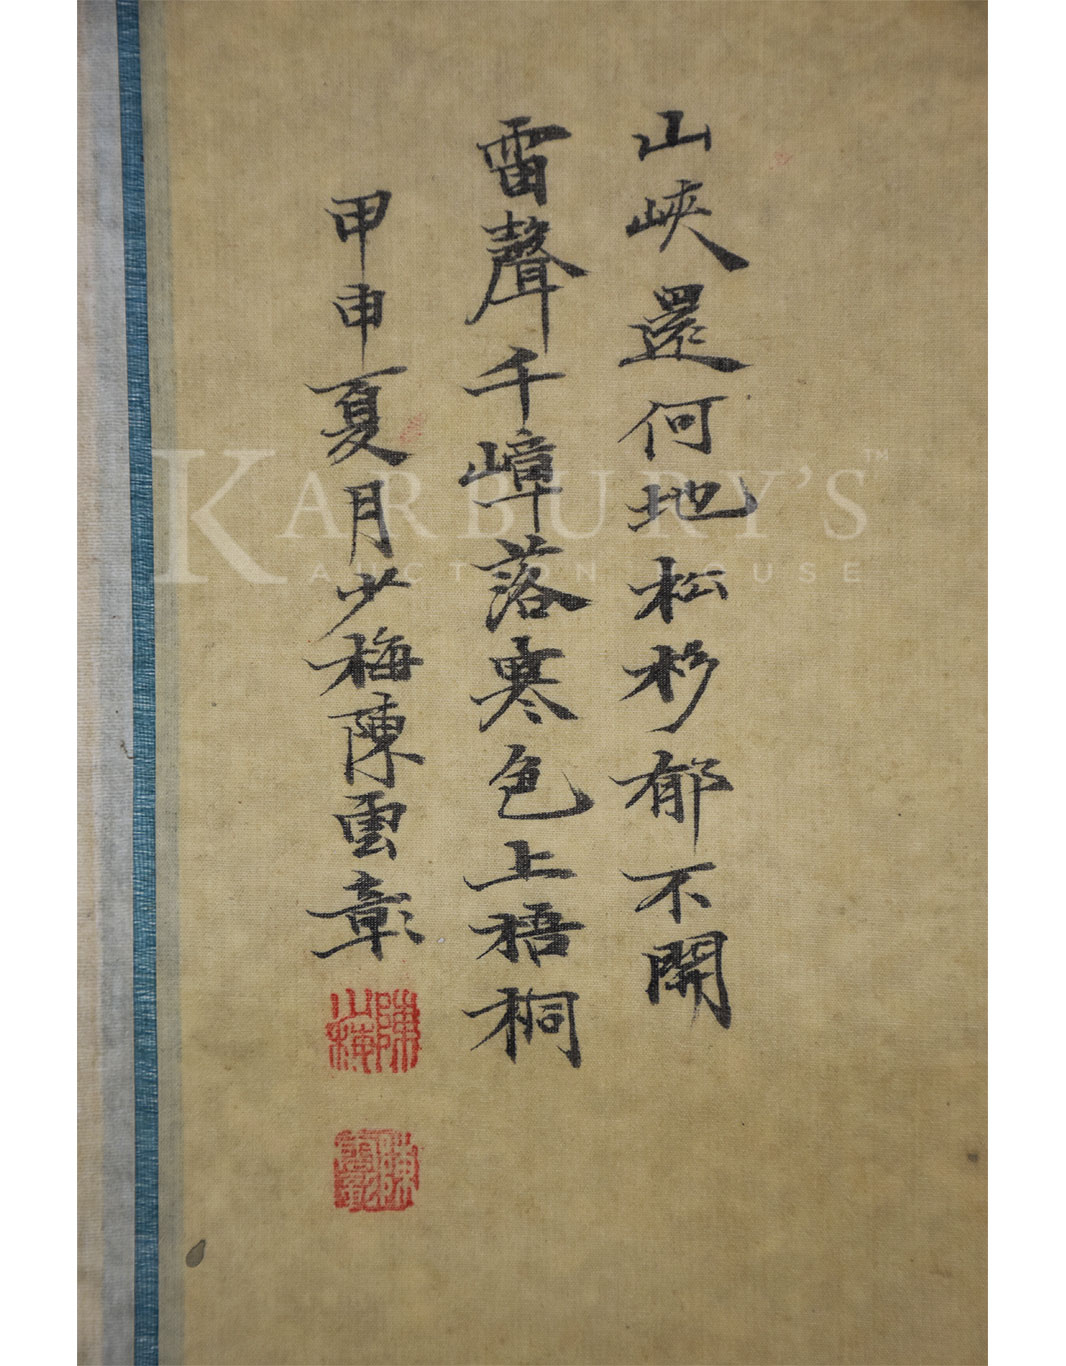 山峽還何地松杉郁不開
雷聲千嶂落寒色上梧桐
甲申夏月少梅陳雲彰
陳少梅
KARBURY'S™
AUCTION HOUSE